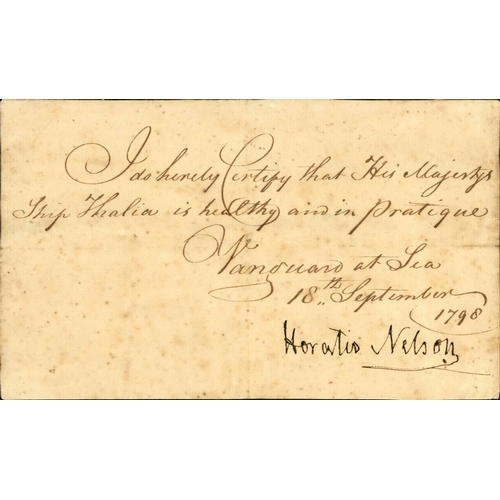 I do hereby Certify that His Majestys
Ship Thalia is healthy and in pratique
Vanguard at Sea
18th September
1798
Horatio Nelson